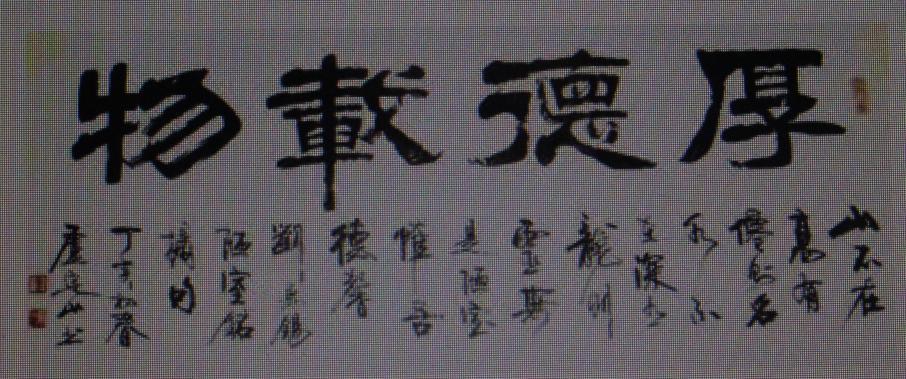 厚德載物
山不在
高有
僊則名
水不
在深有
龍則
靈斯
是陋室
惟吾
德馨
劉禹錫
陋室銘
摘句
丁亥初春
山书